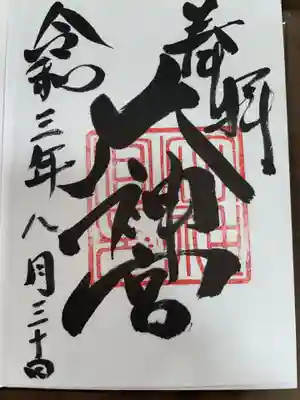 奉拝
大神宮
令和三年八月三十日